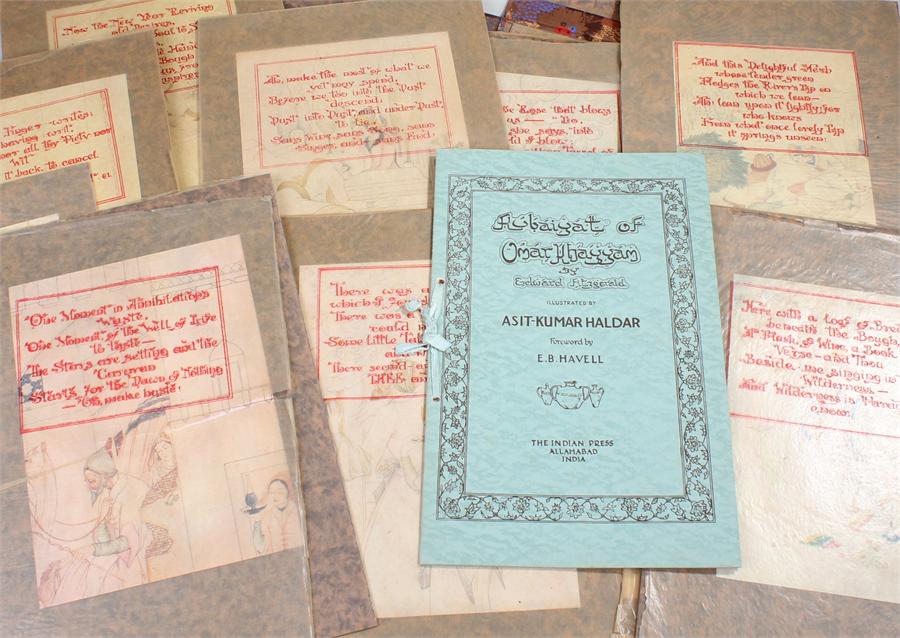 Now the New Year Reviving
Ah, make the most of what we
yet may spend,
Before we too into the Dust
descend;
Dust into Dust, and under Dust,
to lie,
Sans Wine, sans Song, sans
Singer, and sans End!
Finger writes:
having writ
nor all thy Piety nor
Wit
it back to cancel
61
the Rose that blows
us — "Lo,
she says, "into
And this Delightful Herb
whose tender green
Fledges the River's Lip on
which we lean—
Ah, lean upon it lightly; for
who knows
From what once lovely Lip
it springs unseen!
"One Moment in Annihilation's
Waste,
One Moment, of the Well of Life
to taste—
The Stars are setting and the
Caravan
Starts for the Dawn of Nothing
—Oh, make haste!
There was a
which I found
There was
could n
Some little Tal
There seemed—an
THEE an
Rubaiyat of
Omar Khayyam
by
Edward Fitzgerald
ILLUSTRATED BY
ASIT-KUMAR HALDAR
Foreword by
E.B. HAVELL
THE INDIAN PRESS
ALLAHABAD
INDIA
Here with a Loaf of Bread
beneath the Bough,
A Flask of Wine, a Book
Verse—and Thou
Beside me singing in
Wilderness—
And Wilderness is Paradi
enow.